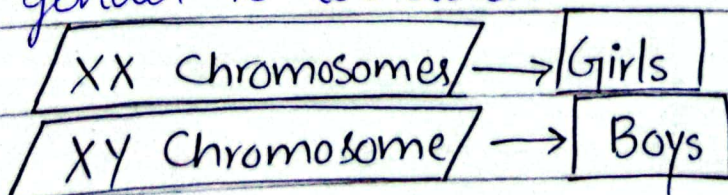 XX Chromosomes → Girls
XY Chromosome → Boys